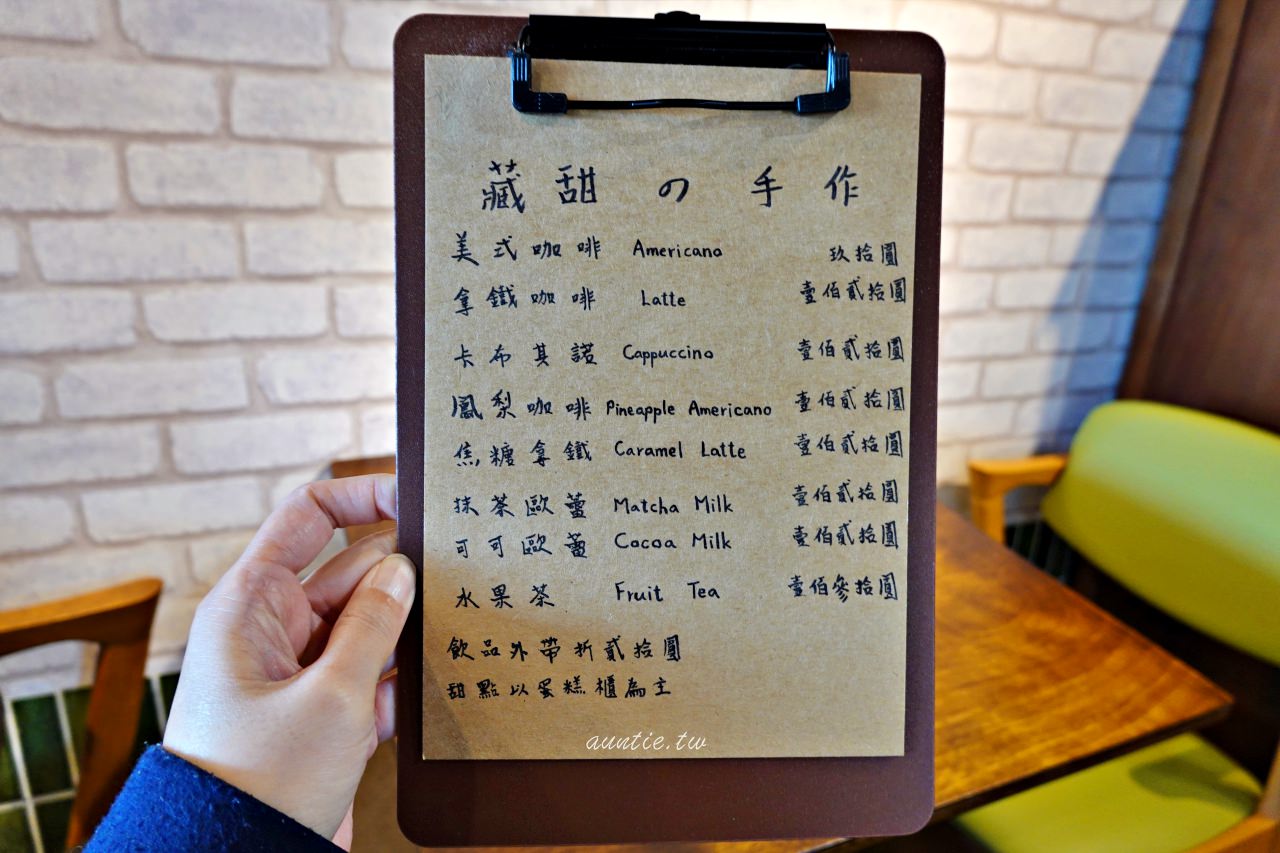 藏甜の手作
美式咖啡 Americano 玖拾圓
拿鐵咖啡 Latte 壹佰貳拾圓
卡布其諾 Cappuccino 壹佰貳拾圓
鳳梨咖啡 Pineapple Americano 壹佰貳拾圓
焦糖拿鐵 Caramel Latte 壹佰貳拾圓
抹茶歐蕾 Matcha Milk 壹佰貳拾圓
可可歐蕾 Cocoa Milk 壹佰貳拾圓
水果茶 Fruit Tea 壹佰參拾圓
飲品外帶折貳拾圓
甜點以蛋糕櫃為主
auntie.tw